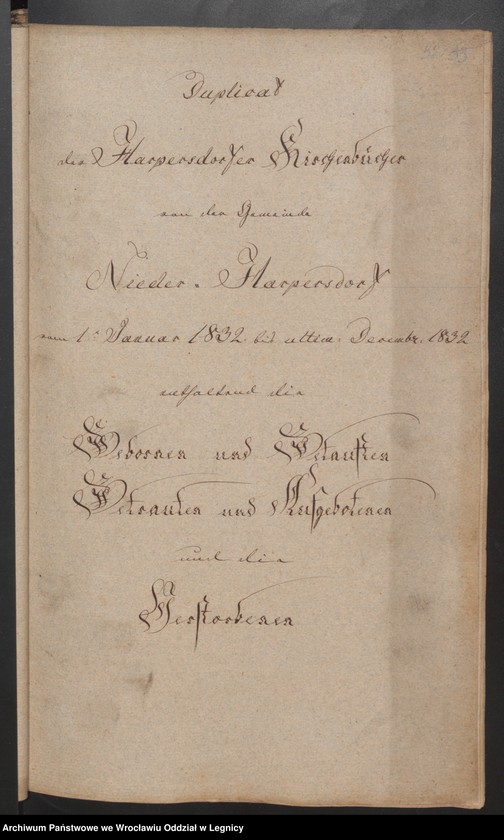 Duplicat
der Harpersdorfer Kirchenbücher
von der Gemeinde
Nieder-Harpersdorf
vom 1. Januar 1832. bis ultim. Decembr. 1832
enthaltend die
Gebornen und Getauften
Getrauten und Aufgebotenen
und die
Verstorbenen
Archiwum Państwowe we Wrocławiu Oddział w Legnicy